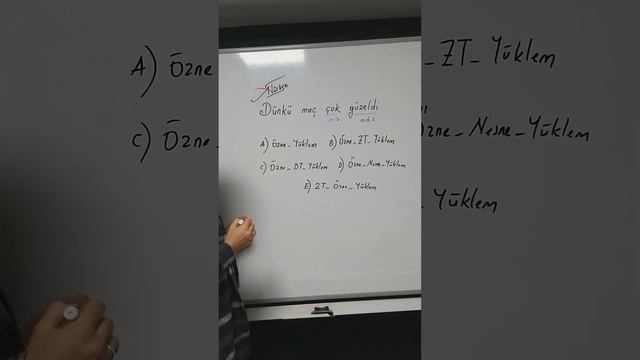 Dünkü maç çok güzeldi
A) Özne - Yüklem B) Özne - ZT - Yüklem
C) Özne - DT - Yüklem D) Özne - Nesne - Yüklem
E) ZT - Özne - Yüklem
A) Özne
- ZT - Yüklem
C) Özne
zne - Nesne - Yüklem
- Yüklem